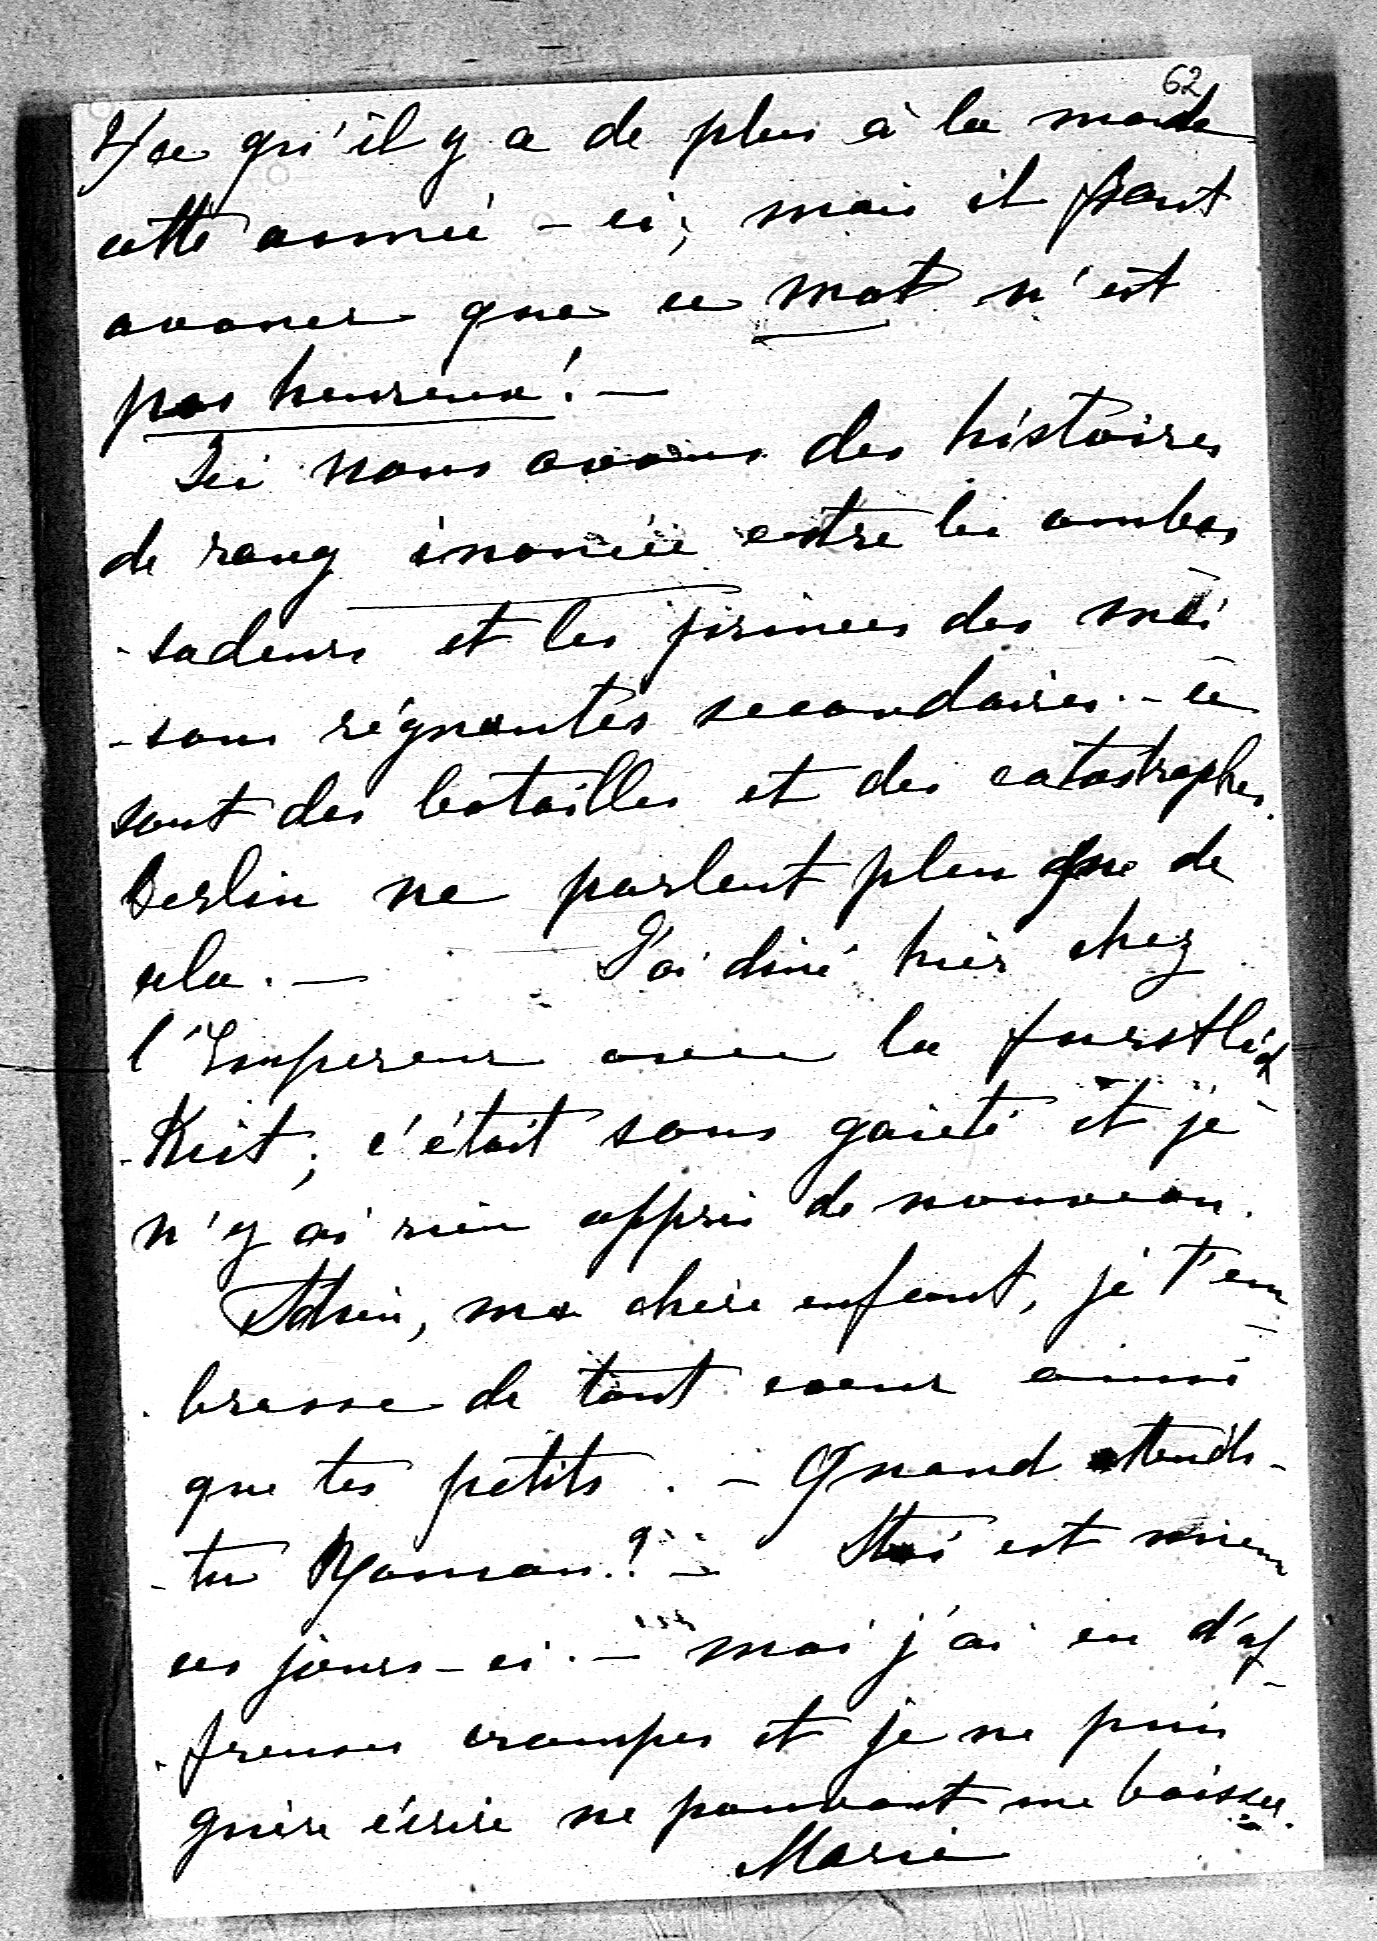 62
4/ce qu'il y a de plus à la mode
cette année-ci; mais il faut
avouer que ce mot n'est
pas heureux! —
Ici nous avons des histoires
de rang inouïe entre les ambas
-sadeurs et les princes des mai
-sons régnantes secondaires. - ce
sont des batailles et des catastrophes.
Berlin ne parlent plus que de
cela. — J'ai diné hier chez
l'Empereur avec la furstlich
-Keit; c'était sans gaieté et je
n'y ai rien appris de nouveau.
Adieu, ma chère enfant, je t'em
-brasse de tout coeur ainsi
que tes petits. - Quand attends-
-tu Roman?! - est mieux
ces jours-ci. - moi j'ai eu d'af-
-freuses crampes et je ne puis
guère écrire ne pouvant me baisser.
Marie